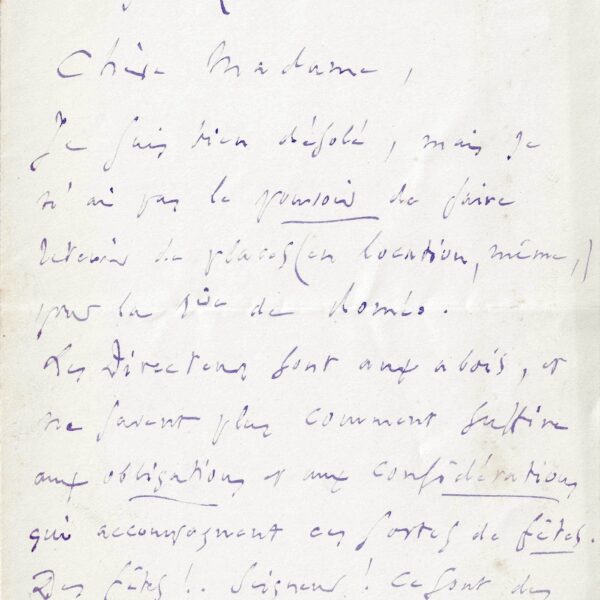 Chère Madame,
Je suis bien désolé, mais je
n'ai pas le pouvoir de faire
retenir de places (en location, même,)
pour la 1ère de Roméo.
Les Directeurs sont aux abois, et
ne savent plus comment suffire
aux obligations et aux considérations
qui accompagnent ces sortes de fêtes.
Des fêtes!.. Seigneur! Ce sont des